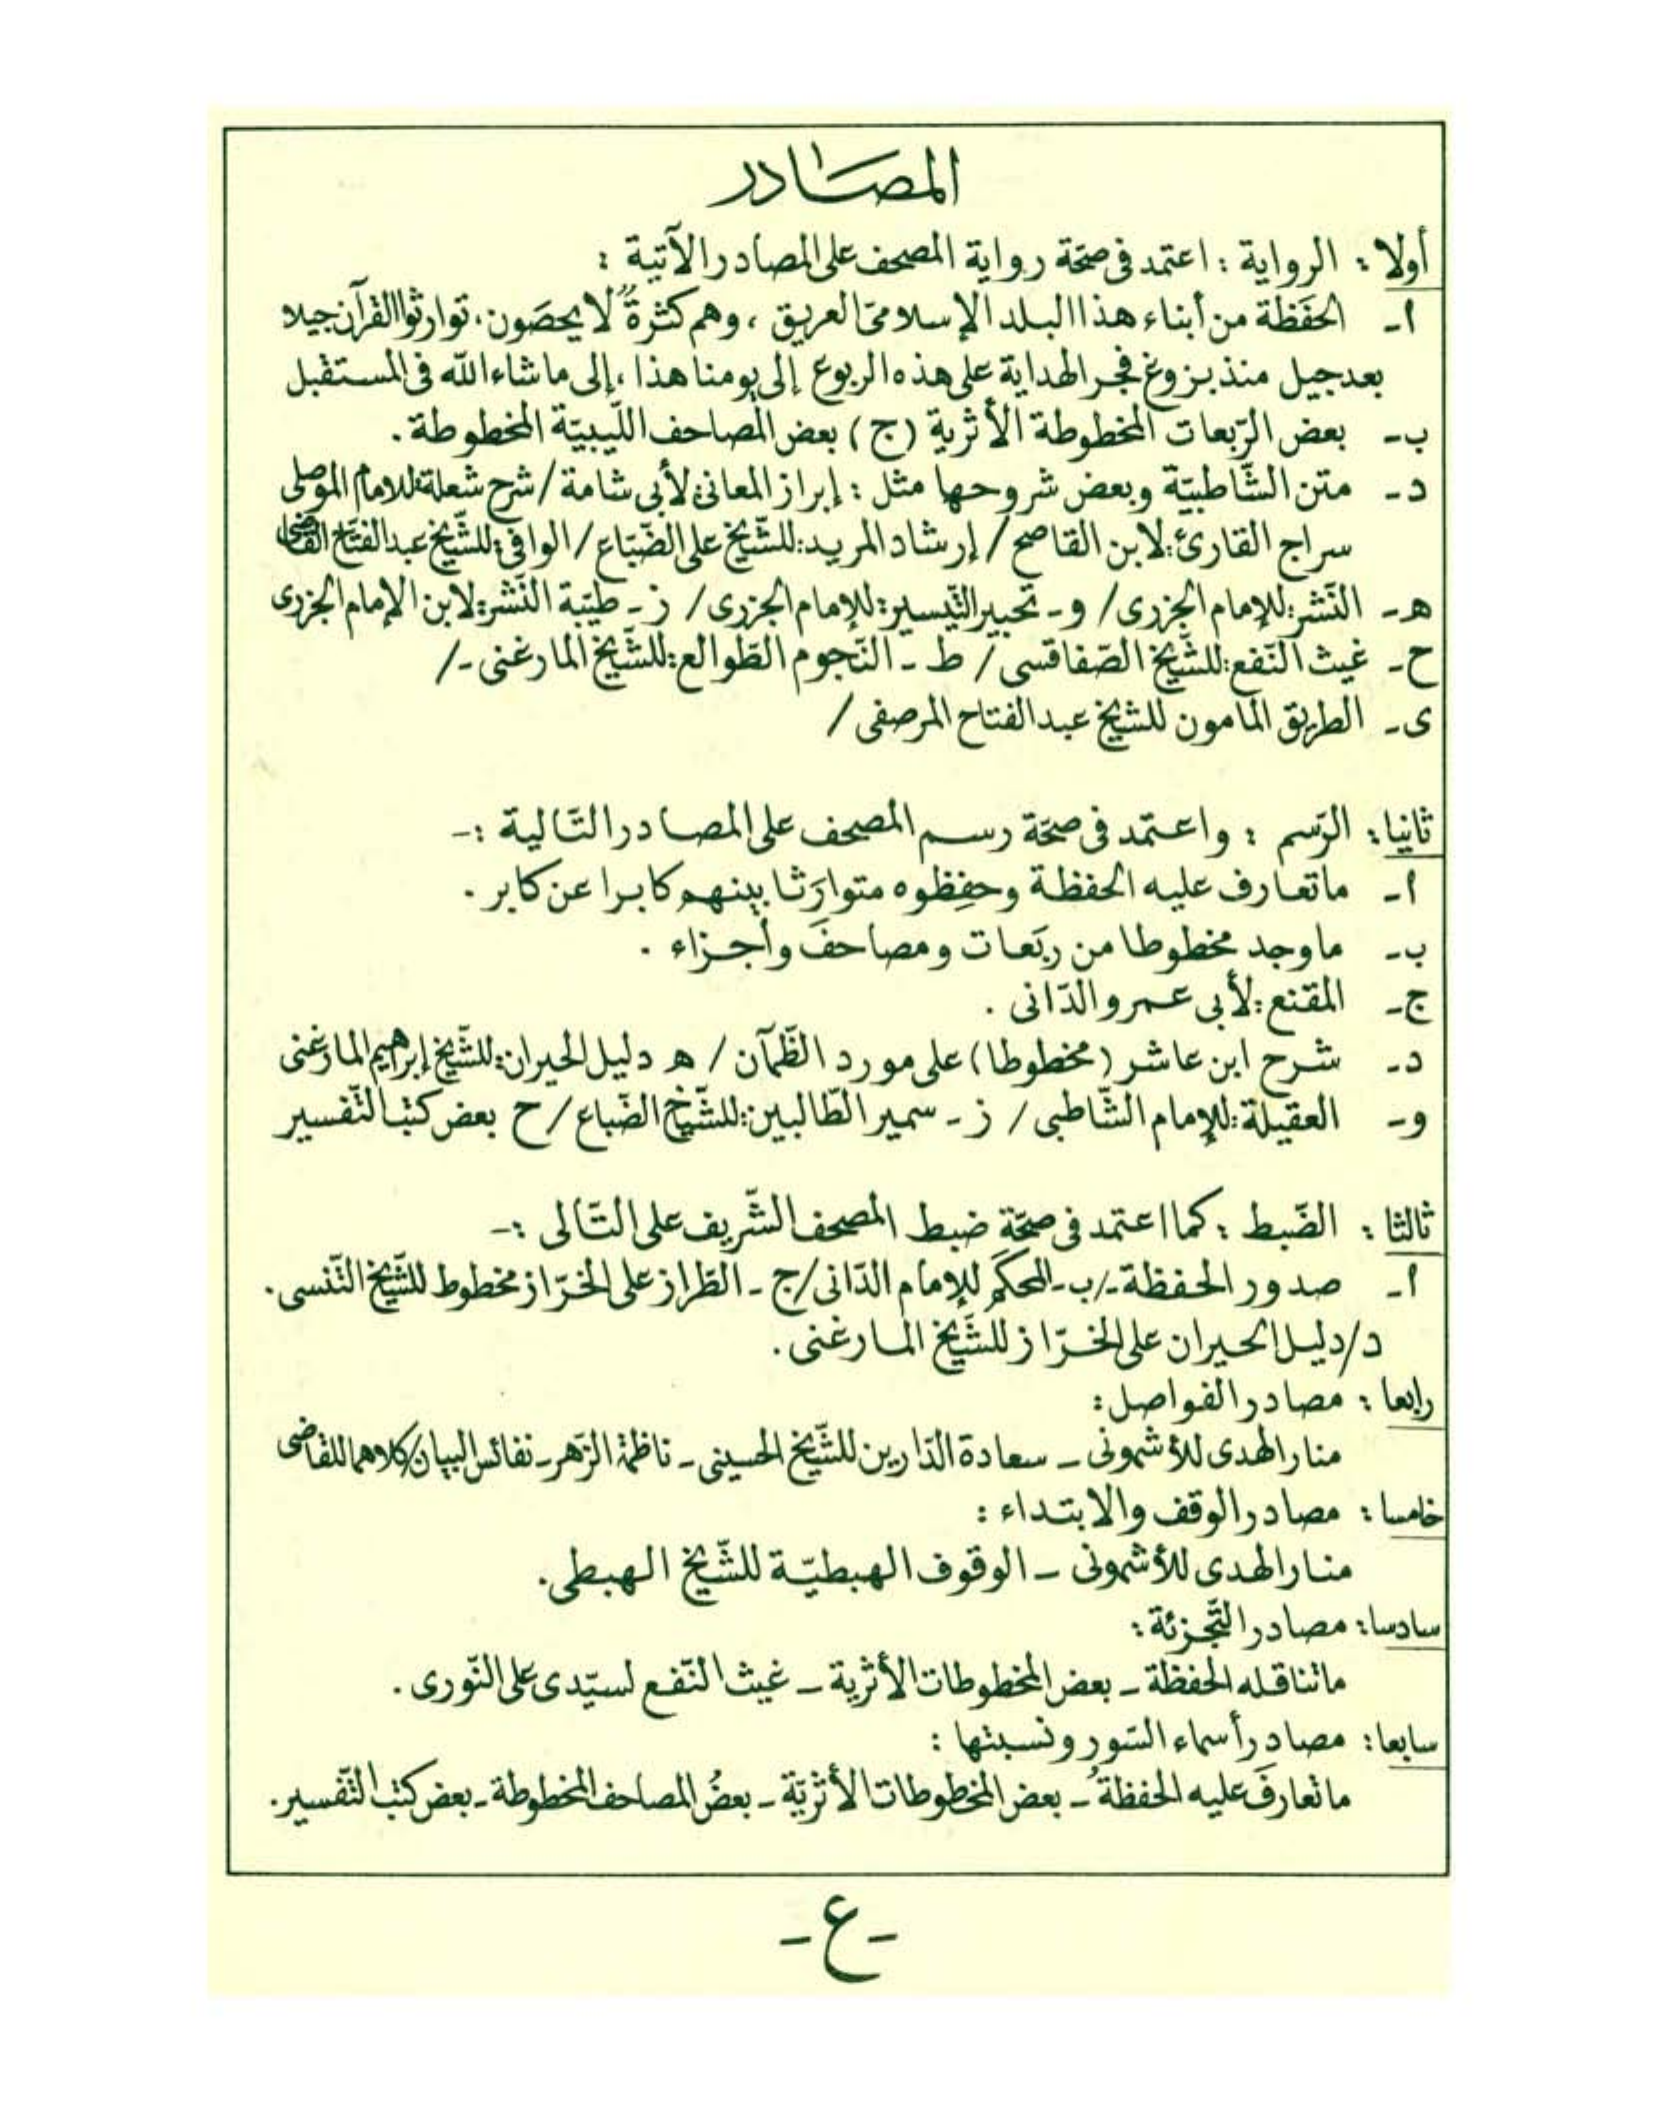 المصادر
أولا : الرواية : اعتمد فى صحّة رواية المصحف على المصادر الآتية :
أ- الحَفَظة من أبناء هذا البلد الإسلامىّ العريق ، وهم كثرةٌ لا يحصَون، توارثوا القرآن جيلا
بعد جيل منذ بزوغ فجر الهداية على هذه الربوع إلى يومنا هذا ، إلى ما شاء الله فى المستقبل
ب- بعض الرّبعات المخطوطة الأثرية (ج) بعض المصاحف اللّيبيّة المخطوطة .
د- متن الشّاطبيّة وبعض شروحها مثل : إبراز المعانى: لأبى شامة / شرح شعلة: للامام الموصلى
سراج القارئ: لابن القاصح / إرشاد المريد: للشّيخ على الضّبّاع / الوافى: للشّيخ عبد الفتّاح القاضى
هـ- النّشر: للإمام الجزرى / و- تحبير التّيسير: للإمام الجزرى / ز- طيّبة النّشر: لابن الإمام الجزرى
ح- غيث النّفع: للشّيخ الصّفاقسى / ط - النّجوم الطّوالع: للشّيخ المارغنى -/
ى- الطريق المأمون للشيخ عبد الفتاح المرصفى /
ثانيا: الرّسم : واعتمد فى صحّة رسم المصحف على المصادر التّالية :-
أ- ما تعارف عليه الحفظة وحفِظوه متوارَثا بينهم كابرا عن كابر .
ب- ما وجد مخطوطا من ربَعات ومصاحفَ وأجزاء .
ج- المقنع: لأبى عمرو الدّانى .
د- شرح ابن عاشر (مخطوطا) على مورد الظّمآن / هـ دليل الحيران: للشّيخ إبراهيم المارغنى
و- العقيلة: للإمام الشّاطبى / ز- سمير الطّالبين: للشّيخ الضّباع / ح بعض كتب التّفسير
ثالثا : الضّبط : كما اعتمد فى صحّة ضبط المصحف الشّريف على التّالى :-
أ- صدور الحفظة -/ب- المحكَم للإمام الدّانى /ج - الطّراز على الخرّاز مخطوط للشّيخ التّنسى.
د/ دليل الحيران على الخرّاز للشّيخ المارغنى.
رابعا : مصادر الفواصل :
منار الهدى للأشمونى - سعادة الدّارين للشّيخ الحسينى - ناظمة الزّهر - نفائس البيان / كلاهما للقاضى
خامسا : مصادر الوقف والابتداء :
منار الهدى للأشمونى - الوقوف الهبطيّة للشّيخ الهبطى.
سادسا: مصادر التّجزئة :
ما تناقله الحفظة - بعض المخطوطات الأثرية - غيث النّفع لسيّدى على النّورى .
سابعا: مصادر أسماء السّور ونسبتها :
ما تعارفَ عليه الحفظةُ - بعض المخطوطات الأثريّة - بعضُ المصاحف المخطوطة - بعض كتب التّفسير.
- ع -